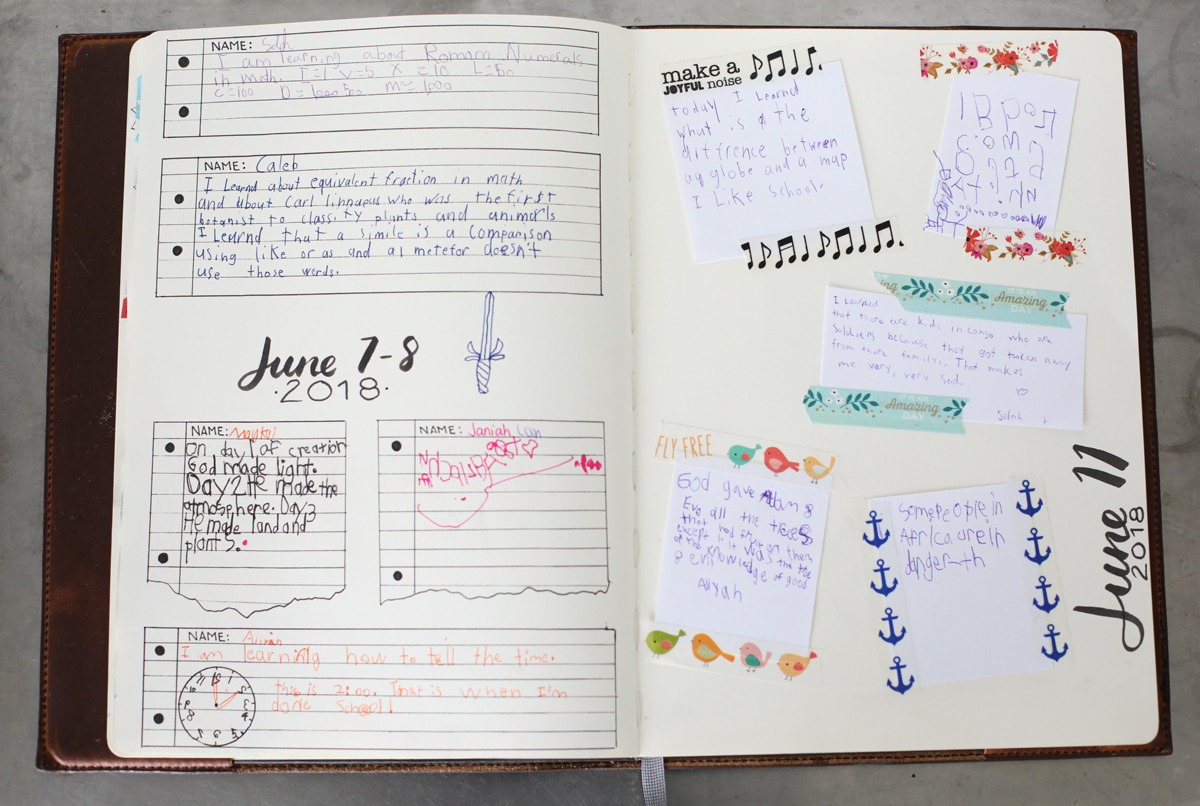 NAME: Selah
I am learning about Roman Numerals
in math. I=1 V=5 X=10 L=50
C=100 D=500 M=1000
NAME: Caleb
I Learnd about equivalent fraction in math
and about Carl linnapus who was the first
botanist to classify plants and animals
I Learnd that a simile is a comparison
using like or as and a metefor doesn't
use those words.
June 7-8
·2018·
NAME:
On day 1 of creation
God made light.
Day 2 He made the
atmosphere. Day 3
He made land and
plants.
NAME: Janiah
NAME: Aliyah
I am learning how to tell the time.
this is 2:00. That is when I'm
done School!
make a
JOYFUL noise
today I Learnd
what is the
diffrence between
a globe and a map
I Like School.
IT IS AN
Amazing
DAY
I Learned
that there are kids in congo who are
Soldiers because they got taken away
from there family. That makes
me very, very sad.
Selah
IT IS AN
Amazing
DAY
FLY FREE
God gave Adam &
Eve all the trees
that had fruit on them
except it was the tree
of the knowledge of good
& evil
Aliyah
Some people in
Africa are in
danger
June 11
2018